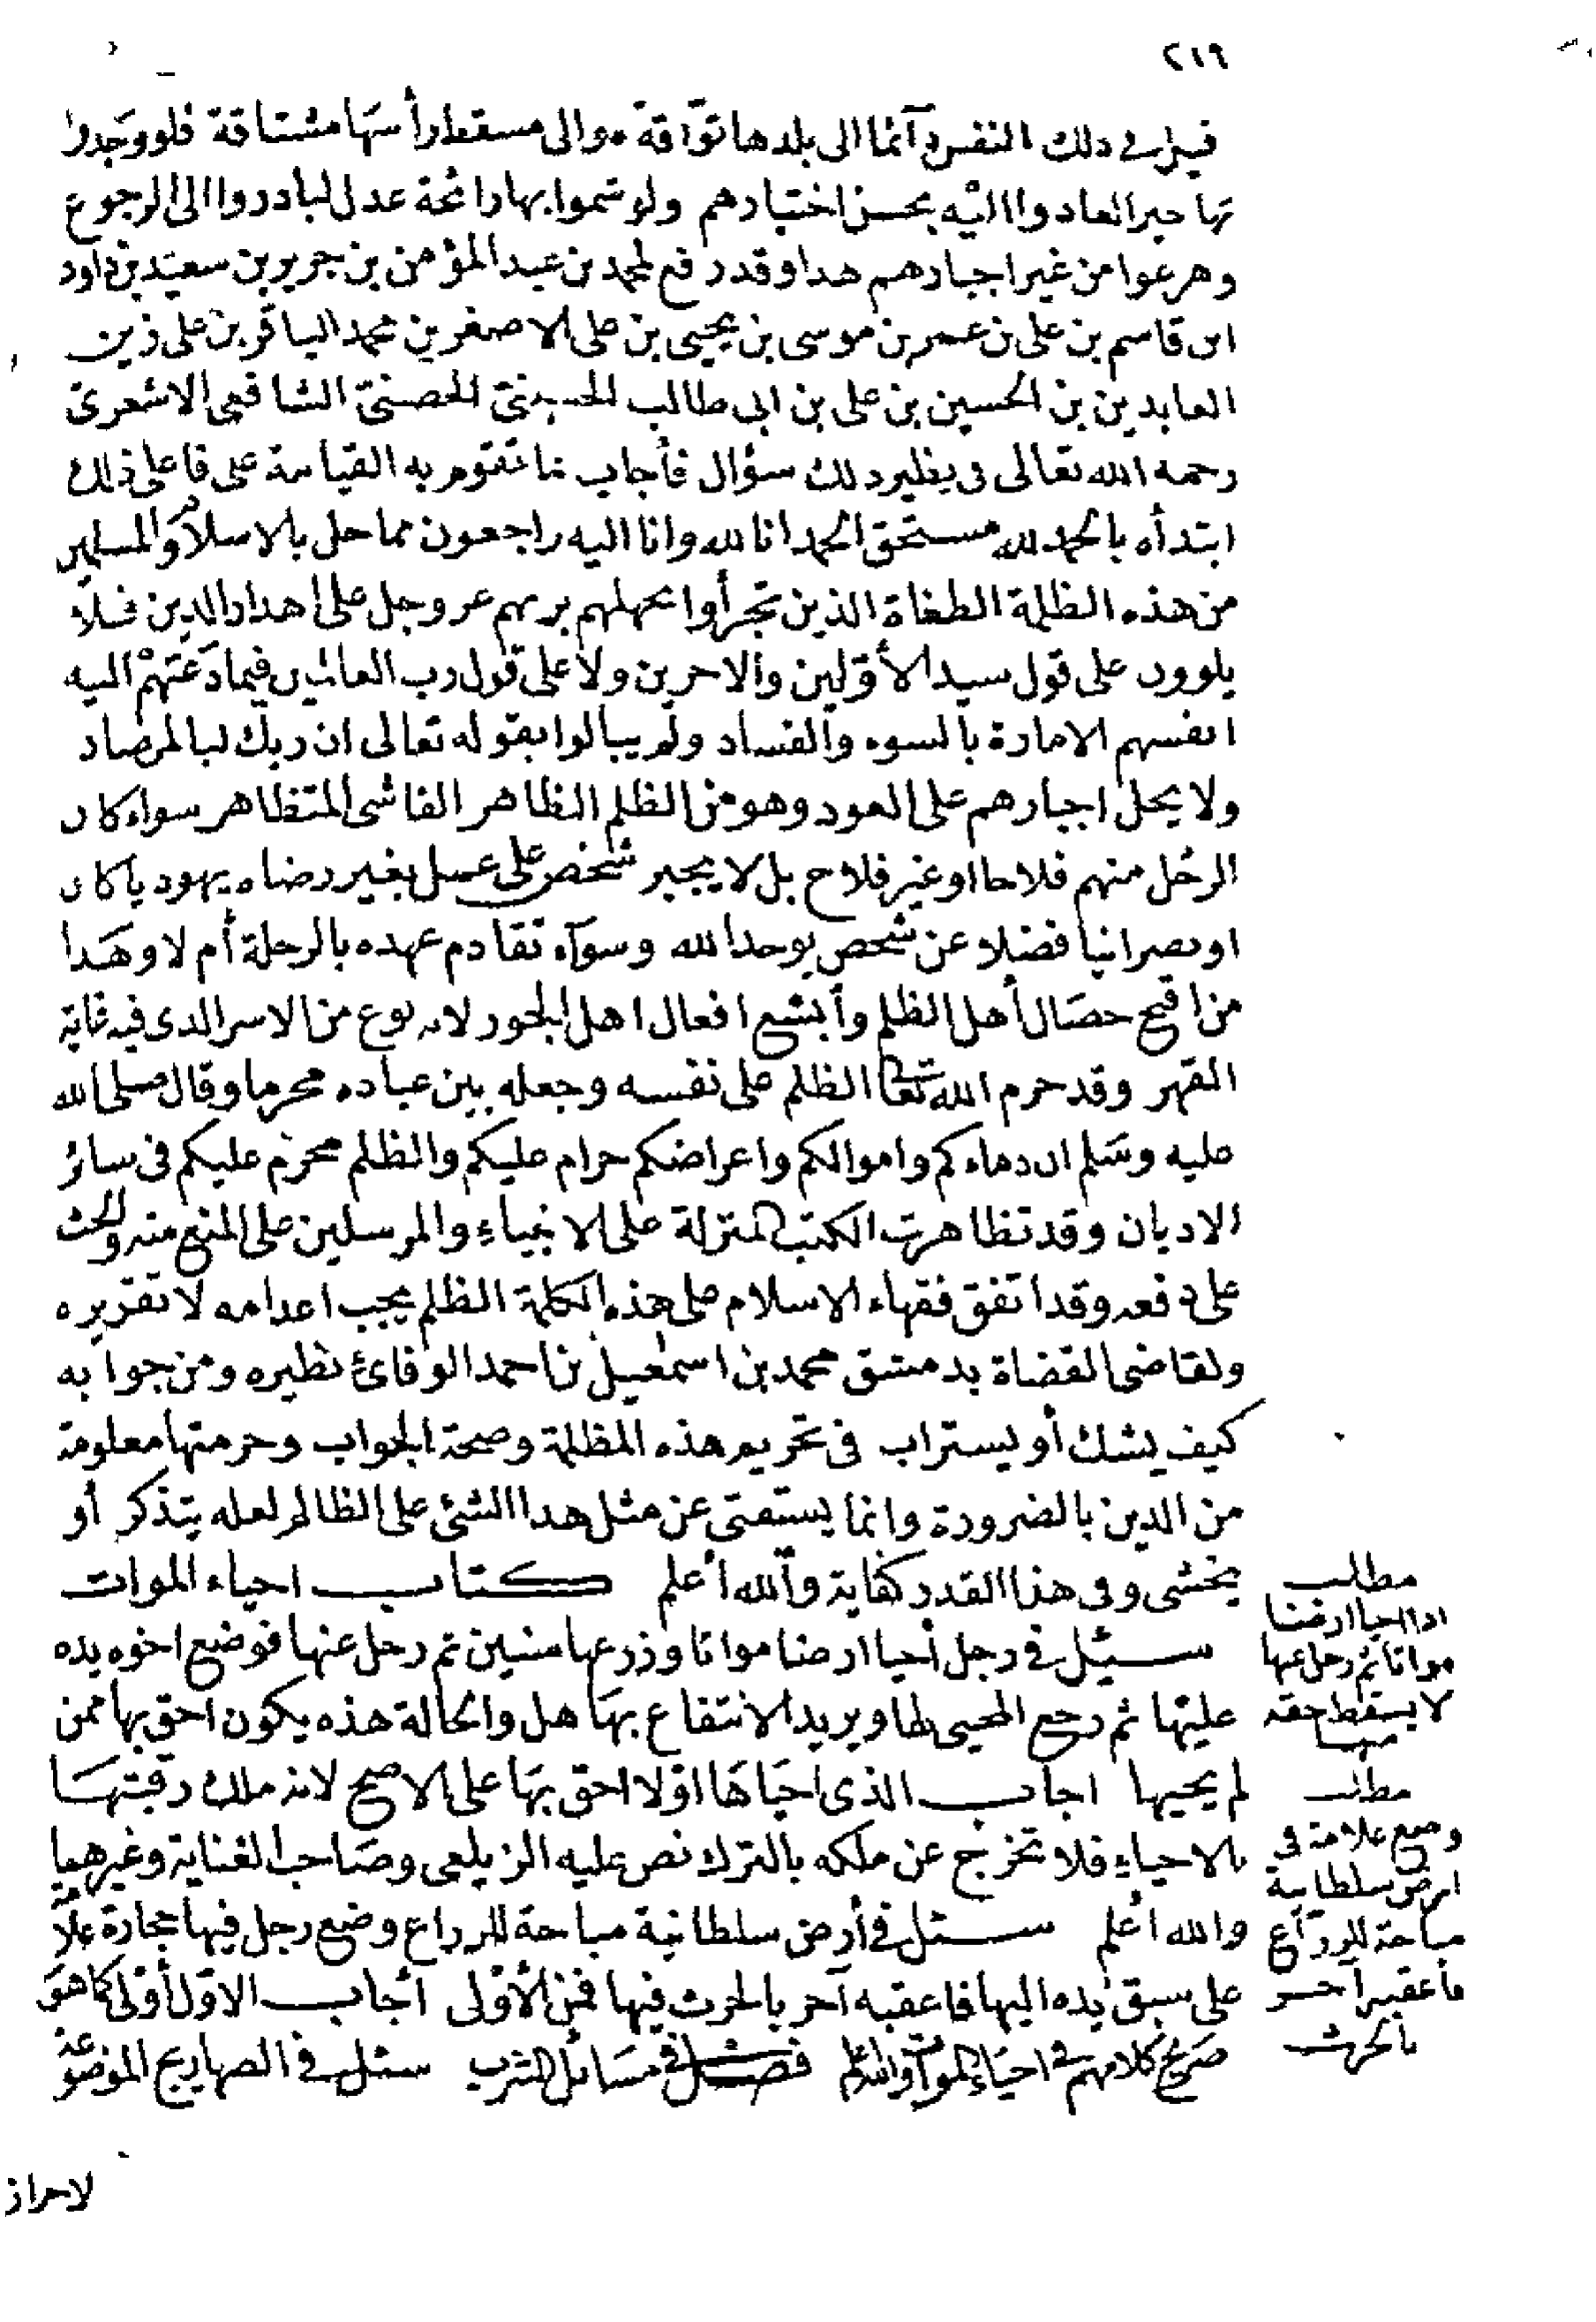 ٢١٩
قيل في ذلك النفس دآئما الى بلدها تواقة، والى مسقط رأسها مشتاقة فلو وجدوا
بها خيرا لعادوا اليه بحسن اختيارهم ولو شموا بها رائحة عدل لبادروا الى الرجوع
وهرعوا من غير اجبارهم هذا وقد رفع لمحمد بن عبد المؤمن بن جرير بن سعيد بن داود
ابن قاسم بن على بن عمر بن موسى بن يحيى بن على الاصغر بن محمد الباقر بن على زين
العابدين بن الحسين بن على بن ابى طالب الحسينى الحصنى الشافعى الاشعرى
رحمه الله تعالى فى نظير ذلك سؤال فأجاب بما تقوم به القيامة على فاعلى ذلك
ابتدأه بالحمد لله مستحق الحمد انا لله وانا اليه راجعون مما حل بالاسلام والمسلمين
من هذه الظلمة الطغاة الذين تجرأوا بجهلهم بربهم عز وجل على اهدار الدين فلا
يلوون على قول سيد الأولين والاخرين ولا على قول رب العالمين فيما دعتهم اليه
انفسهم الامارة بالسوء والفساد ولم يبالوا بقوله تعالى ان ربك لبالمرصاد
ولا يحل اجبارهم على العود وهو من الظلم الظاهر الفاشى المتظاهر سواء كان
الرجل منهم فلاحا او غير فلاح بل لا يجبر شخص على عمل بغير رضاه يهوديا كان
او نصرانيا فضلا عن شخص يوحد الله وسوآء تقادم عهده بالرحلة أم لا وهذا
من اقبح خصال أهل الظلم وأبشع افعال اهل الجور لانه نوع من الاسر الذى فيه غاية
القهر وقد حرم الله تعالى الظلم على نفسه وجعله بين عباده محرما وقال صلى الله
عليه وسلم ان دماءكم واموالكم واعراضكم حرام عليكم والظلم محرم عليكم فى سائر
الاديان وقد تظاهرت الكتب المنزلة على الانبياء والمرسلين على المنع منه والحث
على دفعه وقد اتفق فقهاء الاسلام على هذه الكلمة الظلم يجب اعدامه لا تقريره
ولقاضى القضاة بدمشق محمد بن اسمعيل بن احمد الوفائى نظيره ومن جوابه
كيف يشك أو يستراب فى تحريم هذه المظلمة وصحة الجواب وحرمتها معلومة
من الدين بالضرورة وانما يستفتى عن مثل هذا الشئ على الظالم لعله يتذكر أو
يخشى وفى هذا القدر كفاية والله أعلم كتاب احياء الموات
سئل فى رجل أحيا ارضا مواتا وزرعها سنين ثم رحل عنها فوضع اخوه يده
عليها ثم رجع المحيى لها ويريد الانتفاع بها هل والحالة هذه يكون احق بها ممن
لم يحييها اجاب الذى احياها اولا احق بها على الاصح لانه ملك رقبتها
بالاحياء فلا تخرج عن ملكه بالترك نص عليه الزيلعى وصاحب العناية وغيرهما
والله أعلم سئل فى أرض سلطانية مباحة للزراع وضع رجل فيها حجارة علامة
على سبق يده اليها فاعقبه آخر بالحرث فيها فمن الأولى أجاب الاول أولى كما هو
صريح كلامهم فى احياء الموات والله أعلم فصل فى مسائل الشرب سئل فى الصهاريج الموضوعة
لاحراز
مطلب
اذا احيا ارضا
مواتا ثم رحل عنها
لا يسقط حقه
منها
مطلب
وضع علامة فى
ارض سلطانية
مباحة للزراع
فأعقبه آخر
بالحرث